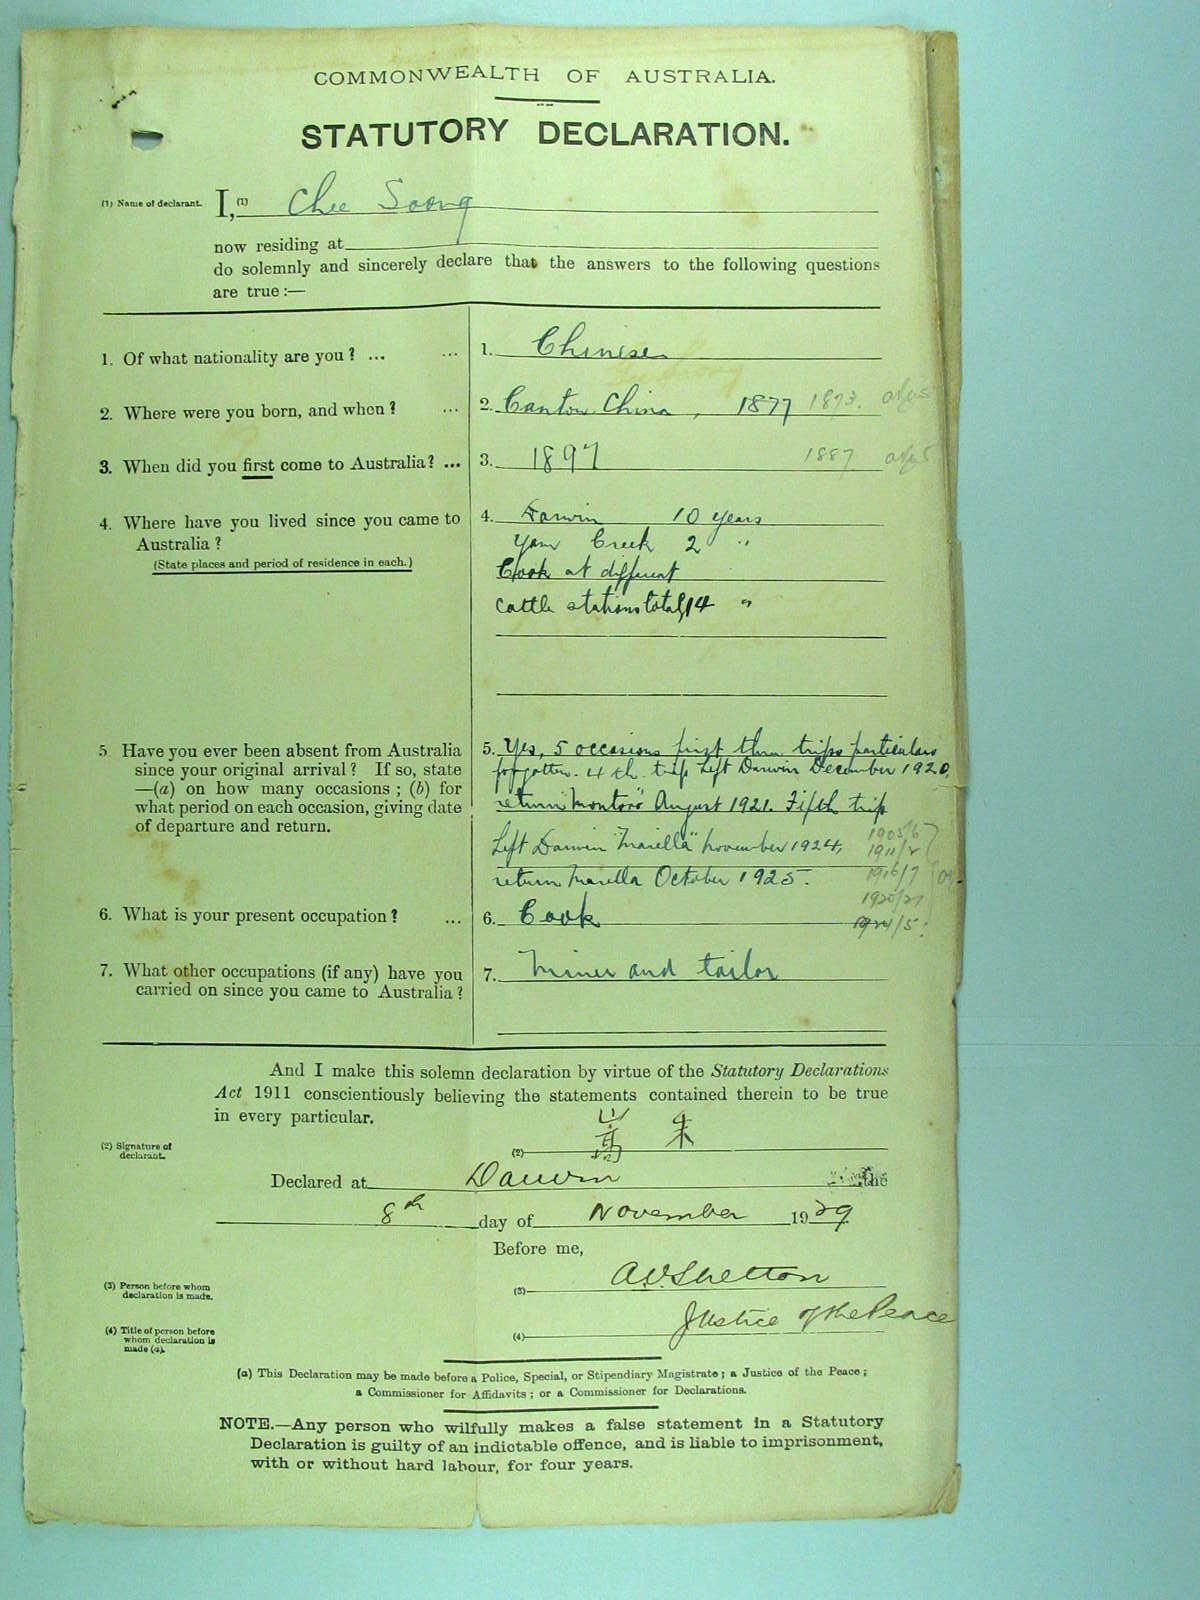 COMMONWEALTH OF AUSTRALIA.
STATUTORY DECLARATION.
(1) Name of declarant. I, (1) Chee Soong
now residing at
do solemnly and sincerely declare that the answers to the following questions
are true :—
1. Of what nationality are you ? ... ... 1. Chinese
2. Where were you born, and when ? ... 2. Canton China, 1877 1873.
3. When did you first come to Australia? ... 3. 1897 1887
4. Where have you lived since you came to 4. Darwin 10 years
Australia ? Yam Creek 2 "
(State places and period of residence in each.) Cook at different
cattle stations total 14 "
5 Have you ever been absent from Australia 5. Yes, 5 occasions first three trips particulars
since your original arrival ? If so, state forgotten. 4th trip Left Darwin December 1920,
—(a) on how many occasions ; (b) for return "Montoro" August 1921. Fifth trip
what period on each occasion, giving date
of departure and return. Left Darwin "Marella" November 1924, 1905/6
1911/2
return Marella October 1925. 1916/7
1920/21
6. What is your present occupation ? ... 6. Cook 1924/5
7. What other occupations (if any) have you 7. Miner and tailor
carried on since you came to Australia ?
And I make this solemn declaration by virtue of the Statutory Declarations
Act 1911 conscientiously believing the statements contained therein to be true
in every particular.
(2) Signature of (2) 朱
declarant.
Declared at Darwin the
8th day of November 1929
Before me,
(3) Person before whom (3) A V Shelton
declaration is made.
(4) Title of person before (4) Justice of the Peace
whom declaration is
made (a).
(a) This Declaration may be made before a Police, Special, or Stipendiary Magistrate ; a Justice of the Peace ;
a Commissioner for Affidavits ; or a Commissioner for Declarations.
NOTE.—Any person who wilfully makes a false statement in a Statutory
Declaration is guilty of an indictable offence, and is liable to imprisonment,
with or without hard labour, for four years.